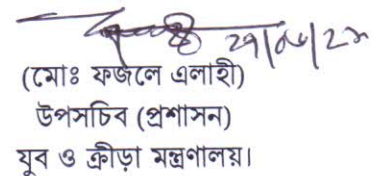 (মোঃ ফজলে এলাহী)
উপসচিব (প্রশাসন)
যুব ও ক্রীড়া মন্ত্রণালয়।